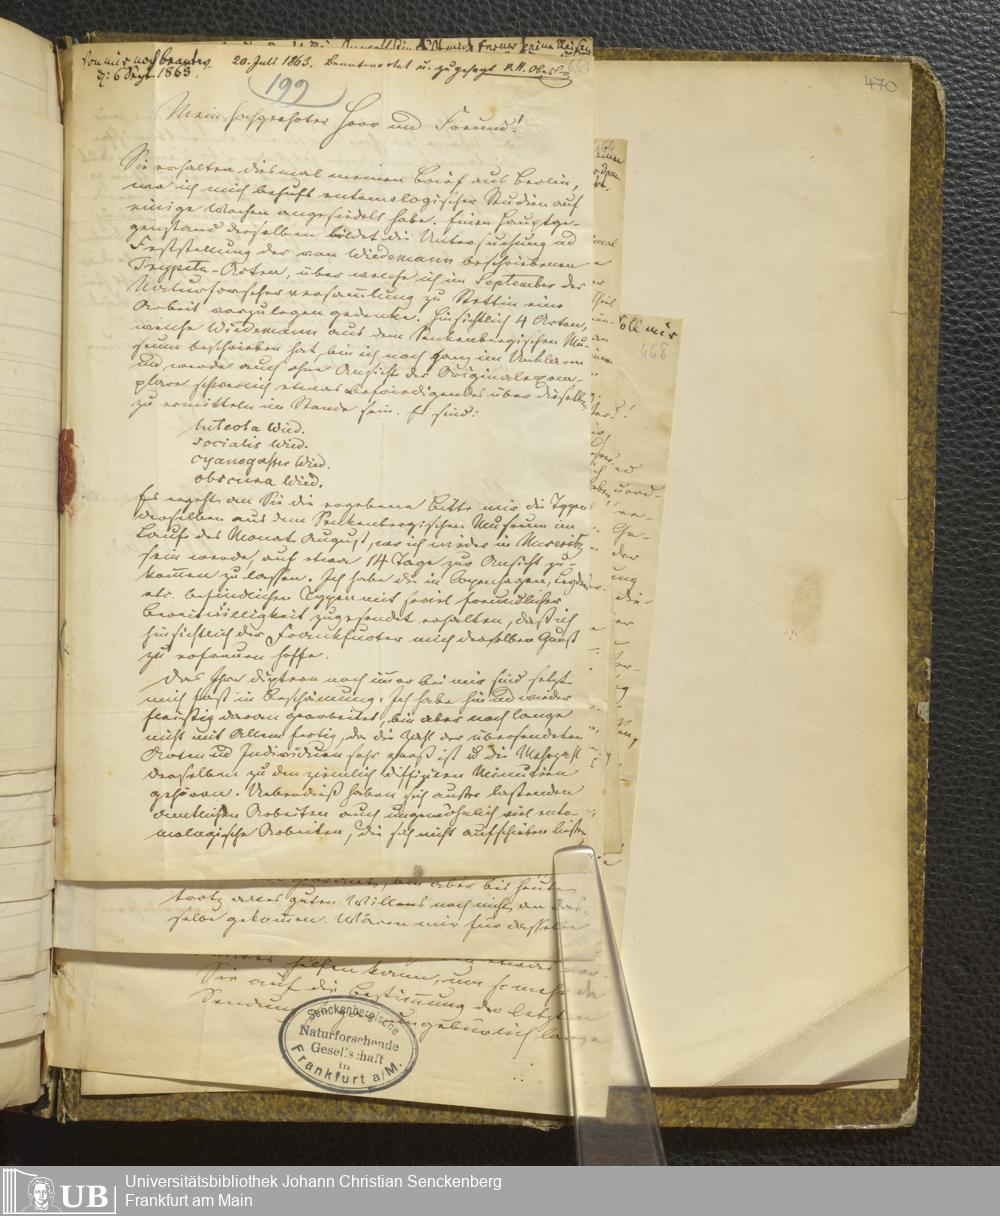 Von mir noch beantw.
d: 6 Sept 1863.
20. Juli 1863. Beantwortet u. zugesagt
470
199
Mein hochgeehrter Herr und Freund!
Sie erhalten diesmal meinen Brief aus Berlin,
wo ich mich behufs entomologischer Studien auf
einige Wochen angesiedelt habe. Einen Hauptge-
genstand derselben bildet die Untersuchung und
Feststellung der von Wiedemann beschriebenen
Trypeta-Arten, über welche ich im September der
Naturforscherversammlung zu Stettin eine
Arbeit vorzulegen gedenke. Hinsichtlich 4 Arten,
welche Wiedemann aus dem Senkenbergischen Mu-
seum beschrieben hat, bin ich noch ganz im Unklaren
und werde auch ohne Ansicht der Originalexem-
plare schwerlich etwas Befriedigendes über dieselben
zu ermitteln im Stande sein. Es sind:
luteola Wied.
socialis Wied.
cyanogaster Wied.
obscura Wied.
Es ergeht an Sie die ergebene Bitte mir die Typen
derselben aus dem Senkenbergischen Museum im
Laufe des Monat August, wo ich wieder in Meseritz
sein werde, auf etwa 14 Tage zur Ansicht zu-
kommen zu lassen. Ich habe die in Copenhagen, Leyden
etc. befindlichen Typen mit soviel freundlicher
Bereitwilligkeit zugesendet erhalten, daß ich
hinsichtlich der Frankfurter mich derselben Gunst
zu erfreuen hoffe.
Daß Ihre Diptern noch immer bei mir sind setzt
mich fast in Beschämung. Ich habe hin und wieder
fleissig daran gearbeitet, bin aber noch lange
nicht mit Allem fertig, da die Zahl der übersendeten
Arten und Individuen sehr groß ist und die Mehrzahl
derselben zu den ziemlich diffizilen Minutien
gehören. Ueberdieß haben sich außer lastenden
amtlichen Arbeiten auch ungewöhnlich viel ento-
mologische Arbeiten, die sich nicht aufschieben ließen
aber bis heute
trotz alles guten Willens noch nicht an das-
selbe gekommen. Wären mir für dasselbe
helfen kann, um so mehr da
Sie auf die Bestimmung der letzten
Sendung ungebürlich lange
468
Senckenbergische
Naturforschende
Gesellschaft
in
Frankfurt a/M.
UB
Universitätsbibliothek Johann Christian Senckenberg
Frankfurt am Main